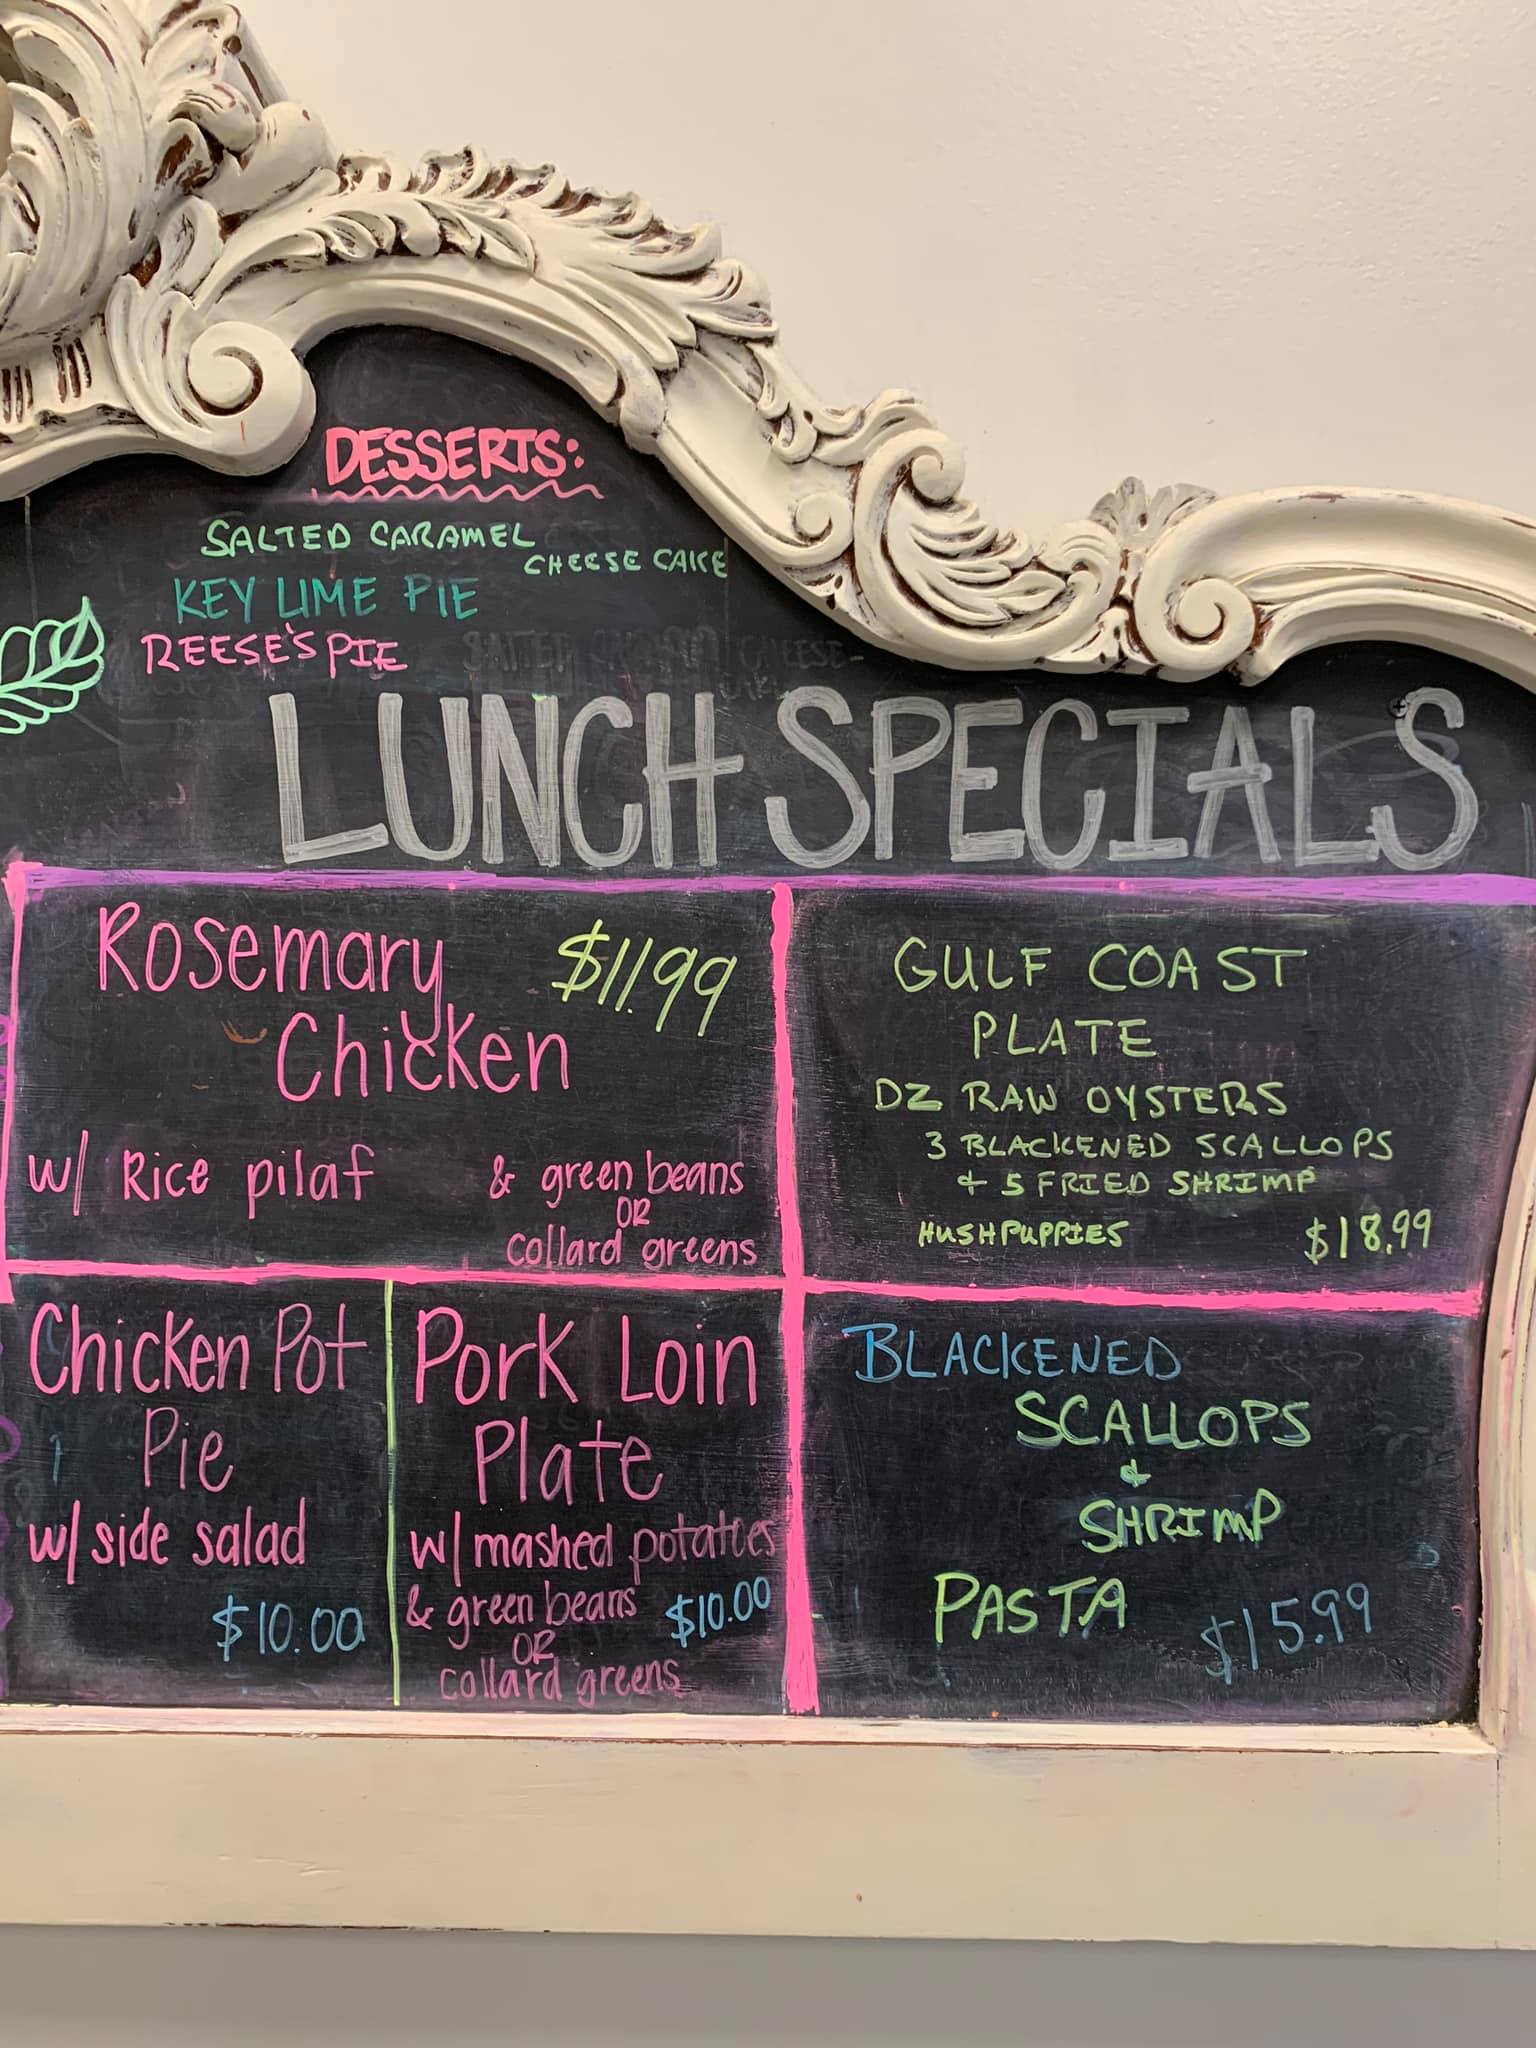 DESSERTS:
SALTED CARAMEL
CHEESE CAKE
KEY LIME PIE
REESE'S PIE
LUNCH SPECIALS
Rosemary $11.99
Chicken
w/ Rice pilaf & green beans
OR
collard greens
GULF COAST
PLATE
DZ RAW OYSTERS
3 BLACKENED SCALLOPS
+ 5 FRIED SHRIMP
HUSHPUPPIES $18.99
Chicken Pot
Pie
w/ side salad
$10.00
Pork Loin
Plate
w/ mashed potatoes
& green beans $10.00
OR
collard greens
BLACKENED
SCALLOPS
&
SHRIMP
PASTA $15.99